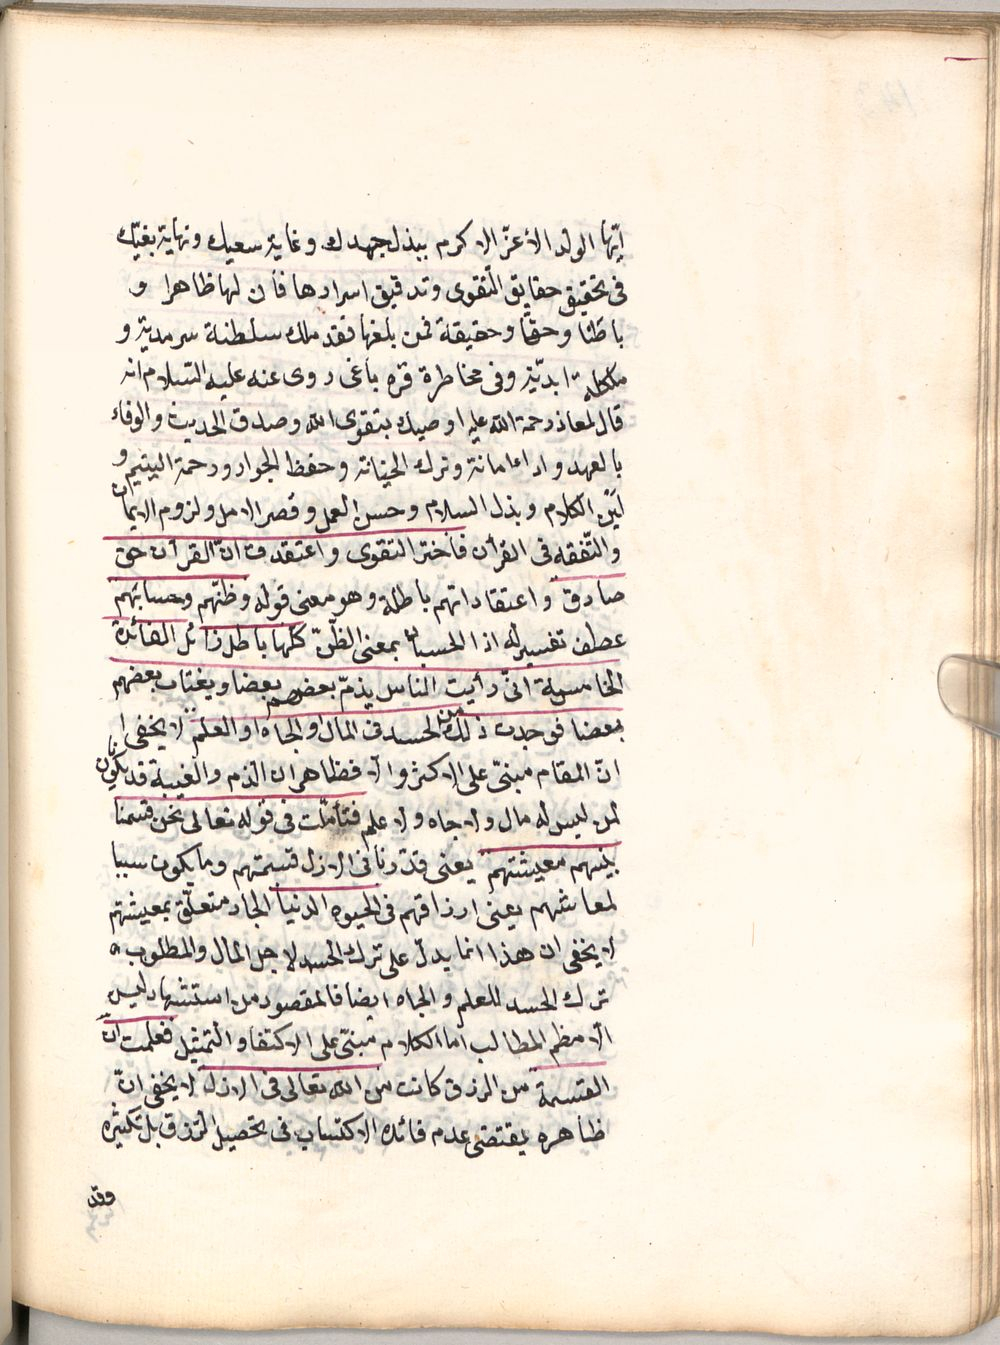 ايّها الولد الأعزّ الاكرم ببذل جهدك وغاية سعيك ونهاية بغيتك
فى تحقيق حقايق التّقوى وتدقيق اسرارها فان لها ظاهرا و
باطنا وحقّا وحقيقة فمن بلغها فقد ملك سلطنة سرمديّة و
مملكة ابديّة وفى مخاطرة قره باغى روى عنه عليه السّلام انه
قال لمعاذ رحمة الله عليه اوصيك بتقوى الله وصدق الحديث والوفاء
بالعهد واداء امانة وترك الخيانة وحفظ الجوار ورحمة اليتيم و
ليّن الكلام وبذل السلام وحسن العمل وقصر الامل ولزوم الايمان
والتّفقه فى القرآن فاختر التقوى واعتقدت انّ القرآن حق
صادق واعتقاداتهم باطلة وهو معنى قوله وظنّهم وحسابتهم
عطف تفسير له اذ الحسبان بمعنى الظّنّ كلّها باطل زائل الفائدة
الخامسة انىّ رأيت الناس يذمّ بعضهم بعضا ويغتاب بعضهم
بعضا فوجدت ذلك من الحسد فى المال او الجاه او العلم لا يخفى
انّ المقام مبنىّ على الاكثر والا فظاهر ان الذم والغيبة قد يكون
لمن ليس له مال ولا جاه ولا علم فتأملّت فى قوله تعالى نحن قسمنا
بينهم معيشتهم يعنى قدّرنا فى الازل قسمتهم وما يكون سببا
لمعاشهم يعنى ارزاقهم فى الحيوه الدنيا الجار متعلّق بمعيشتهم
لا يخفى ان هذا انما يدلّ على ترك الحسد لاجل المال والمطلوب
ترك الحسد للعلم والجاه ايضا فالمقصود من استشهاد ليس
الّا معظم المطالب اما الكلام مبنىّ على الاكتفا والتمثيل فعلمت انّ
القسمة من الرزق كانت من الله تعالى فى الازل لا يخفى انّ
ظاهره يقتضى عدم فائده الاكتساب فى تحصيل الرّزق بل تكثيره
وقد